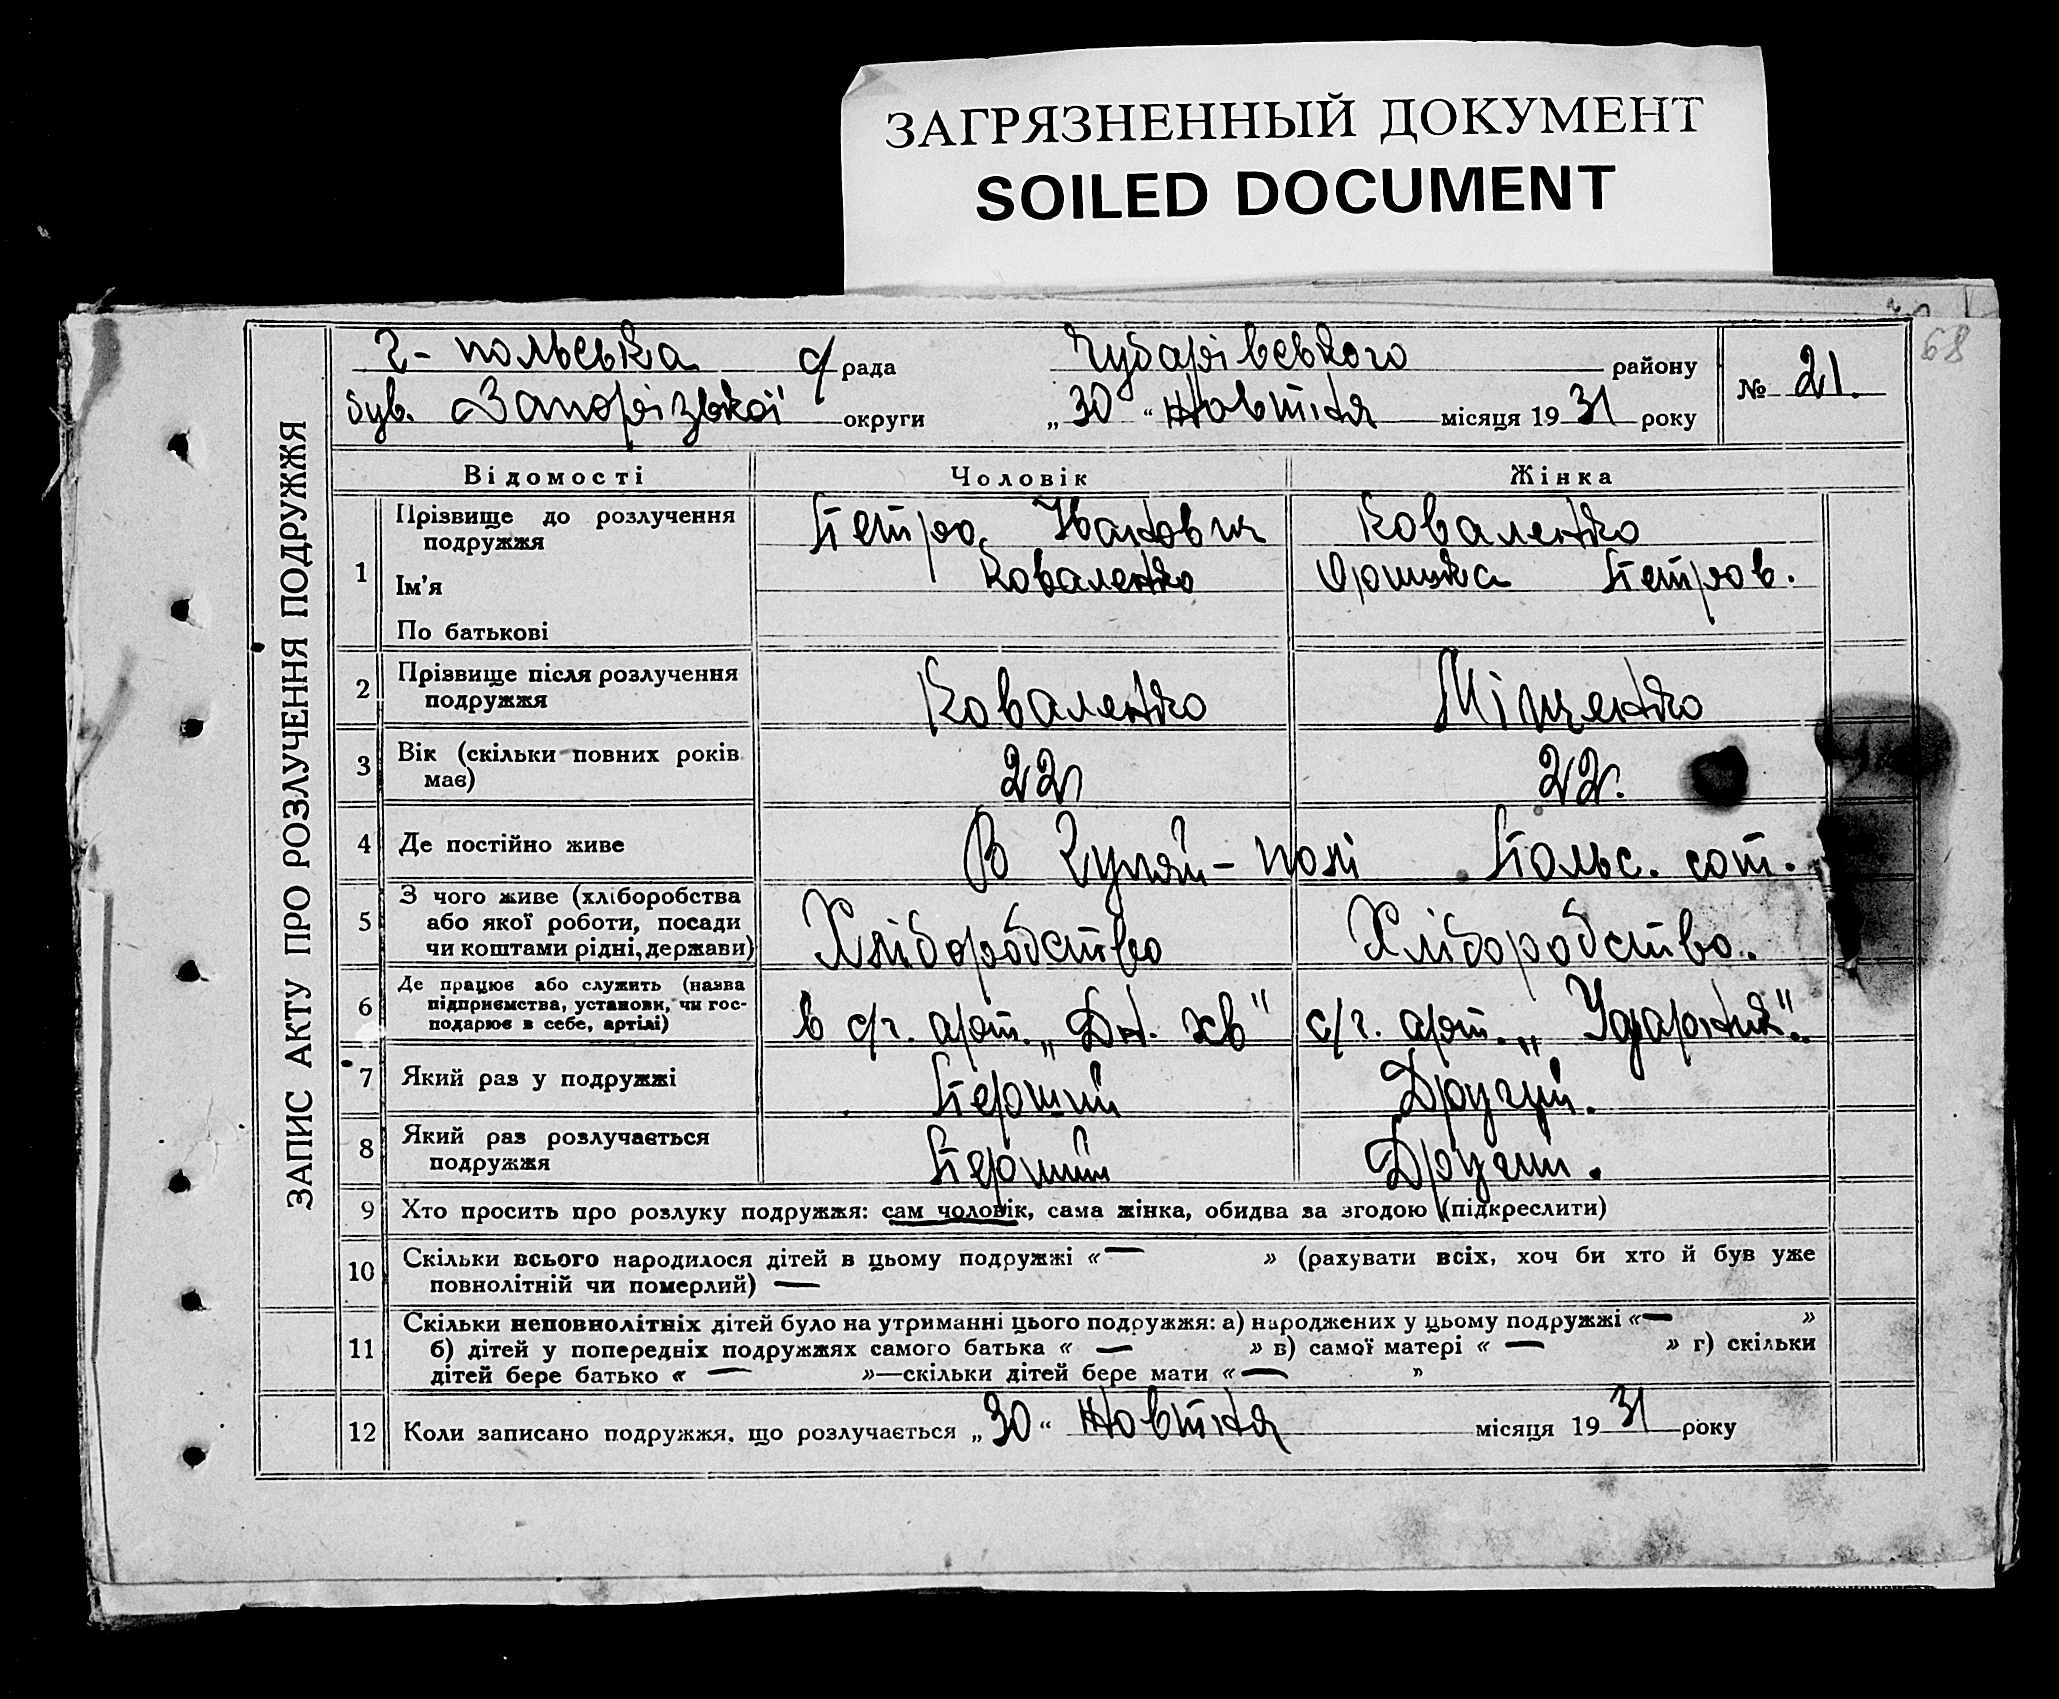 ЗАГРЯЗНЕННЫЙ ДОКУМЕНТ
SOILED DOCUMENT
68
Г-польська с/рада Чубарівського району № 21.
був. Запорізької округи „30“ Жовтня місяця 1931 року
ЗАПИС АКТУ ПРО РОЗЛУЧЕННЯ ПОДРУЖЖЯ
Відомості Чоловік Жінка
1 Прізвище до розлучення подружжя Петро Іванович Коваленко
Ім'я Коваленко Оришка Петров.
По батькові
2 Прізвище після розлучення Коваленко Міщенко
подружжя
3 Вік (скільки повних років 22 22.
має)
4 Де постійно живе В Гуляй-полі Польс. сот.
5 З чого живе (хліборобства
або якої роботи, посади Хліборобство Хліборобство.
чи коштами рідні, держави)
6 Де працює або служить (назва
підприємства, установи, чи гос- в с/г. арт. „Дн. хв" с/г. арт. „Ударник".
подарює в себе, артілі)
7 Який раз у подружжі Перший Другий.
8 Який раз розлучається Перший Другий.
подружжя
9 Хто просить про розлуку подружжя: сам чоловік, сама жінка, обидва за згодою (підкреслити)
10 Скільки всього народилося дітей в цьому подружжі «— » (рахувати всіх, хоч би хто й був уже
повнолітній чи померлий) —
11 Скільки неповнолітніх дітей було на утриманні цього подружжя: а) народжених у цьому подружжі «— »
б) дітей у попередніх подружжях самого батька « — » в) самої матері « — » г) скільки
дітей бере батько « — »—скільки дітей бере мати «— »
12 Коли записано подружжя, що розлучається „30“ Жовтня місяця 1931 року